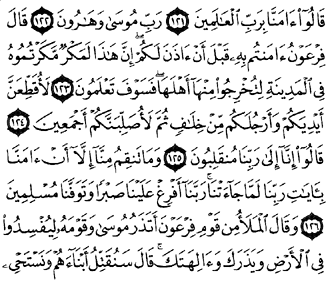 قَالُوٓا۟ ءَامَنَّا بِرَبِّ ٱلْعَٰلَمِينَ ١٢١ رَبِّ مُوسَىٰ وَهَٰرُونَ ١٢٢ قَالَ
فِرْعَوْنُ ءَامَنتُم بِهِۦ قَبْلَ أَنْ ءَاذَنَ لَكُمْ ۖ إِنَّ هَٰذَا لَمَكْرٌ مَّكَرْتُمُوهُ
فِى ٱلْمَدِينَةِ لِتُخْرِجُوا۟ مِنْهَآ أَهْلَهَا ۖ فَسَوْفَ تَعْلَمُونَ ١٢٣ لَأُقَطِّعَنَّ
أَيْدِيَكُمْ وَأَرْجُلَكُم مِّنْ خِلَٰفٍ ثُمَّ لَأُصَلِّبَنَّكُمْ أَجْمَعِينَ ١٢٤
قَالُوٓا۟ إِنَّآ إِلَىٰ رَبِّنَا مُنقَلِبُونَ ١٢٥ وَمَا تَنقِمُ مِنَّآ إِلَّآ أَنْ ءَامَنَّا
بِـَٔايَٰتِ رَبِّنَا لَمَّا جَآءَتْنَا ۚ رَبَّنَآ أَفْرِغْ عَلَيْنَا صَبْرًا وَتَوَفَّنَا مُسْلِمِينَ
١٢٦ وَقَالَ ٱلْمَلَأُ مِن قَوْمِ فِرْعَوْنَ أَتَذَرُ مُوسَىٰ وَقَوْمَهُۥ لِيُفْسِدُوا۟
فِى ٱلْأَرْضِ وَيَذَرَكَ وَءَالِهَتَكَ ۚ قَالَ سَنُقَتِّلُ أَبْنَآءَهُمْ وَنَسْتَحْىِۦ